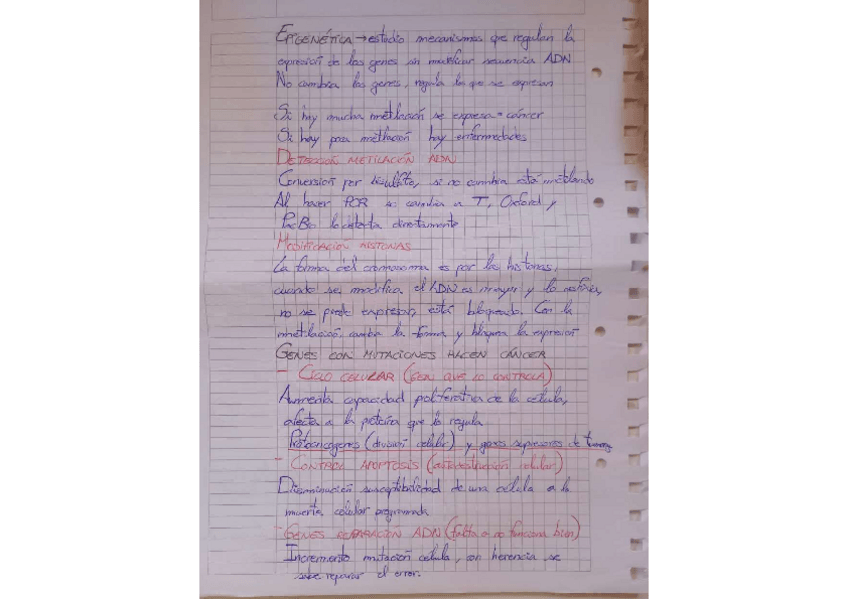 EPIGENÉTICA → estudio mecanismos que regulan la
expresión de los genes sin modificar secuencia ADN
No cambia los genes, regula lo que se expresan
Si hay mucha metilación se expresa = cáncer
Si hay poca metilación hay enfermedades
DETECCIÓN METILACIÓN ADN
Conversión por bisulfito, si no cambia está metilando
Al hacer PCR se cambia a T, Oxford y
PacBio lo detecta directamente
MODIFICACIÓN HISTONAS
La forma del cromosoma es por las histonas,
cuando se modifica el ADN es mayor y lo
no se puede expresar, está bloqueado. Con la
metilación cambia la forma y bloquea la expresión
GENES CON MUTACIONES HACEN CÁNCER
- CICLO CELULAR (GEN QUE LO CONTROLA)
Aumenta capacidad proliferativa de la célula,
afecta a la proteína que lo regula.
Protooncogenes (división celular) y genes supresores de tumores
- CONTROL APOPTOSIS (autodestrucción celular)
Disminución susceptibilidad de una célula a la
muerte celular programada
- GENES REPARACIÓN ADN (falta o no funciona bien)
Incremento mutación célula, con herencia, se
sabe reparar el error.